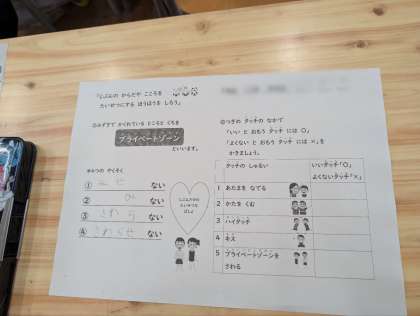 「じぶんの からだや こころを
たいせつにする ほうほうを しろう」
◎みずぎで かくれている ところと くちを
プライベートゾーン
といいます。
◎4つの やくそく
① みせ ない
② み ない
③ さわら ない
④ さわらせ ない
じぶんだけの
たいせつな
ばしょ
◎つぎの タッチの なかで
「いい と おもう タッチ には ○」
「よくない と おもう タッチ には ×」を
かきましょう。
タッチの しゅるい
いいタッチ「○」
よくないタッチ「×」
1 あたまを なでる
2 かたを くむ
3 ハイタッチ
4 キス
5 プライベートゾーンを
さわる